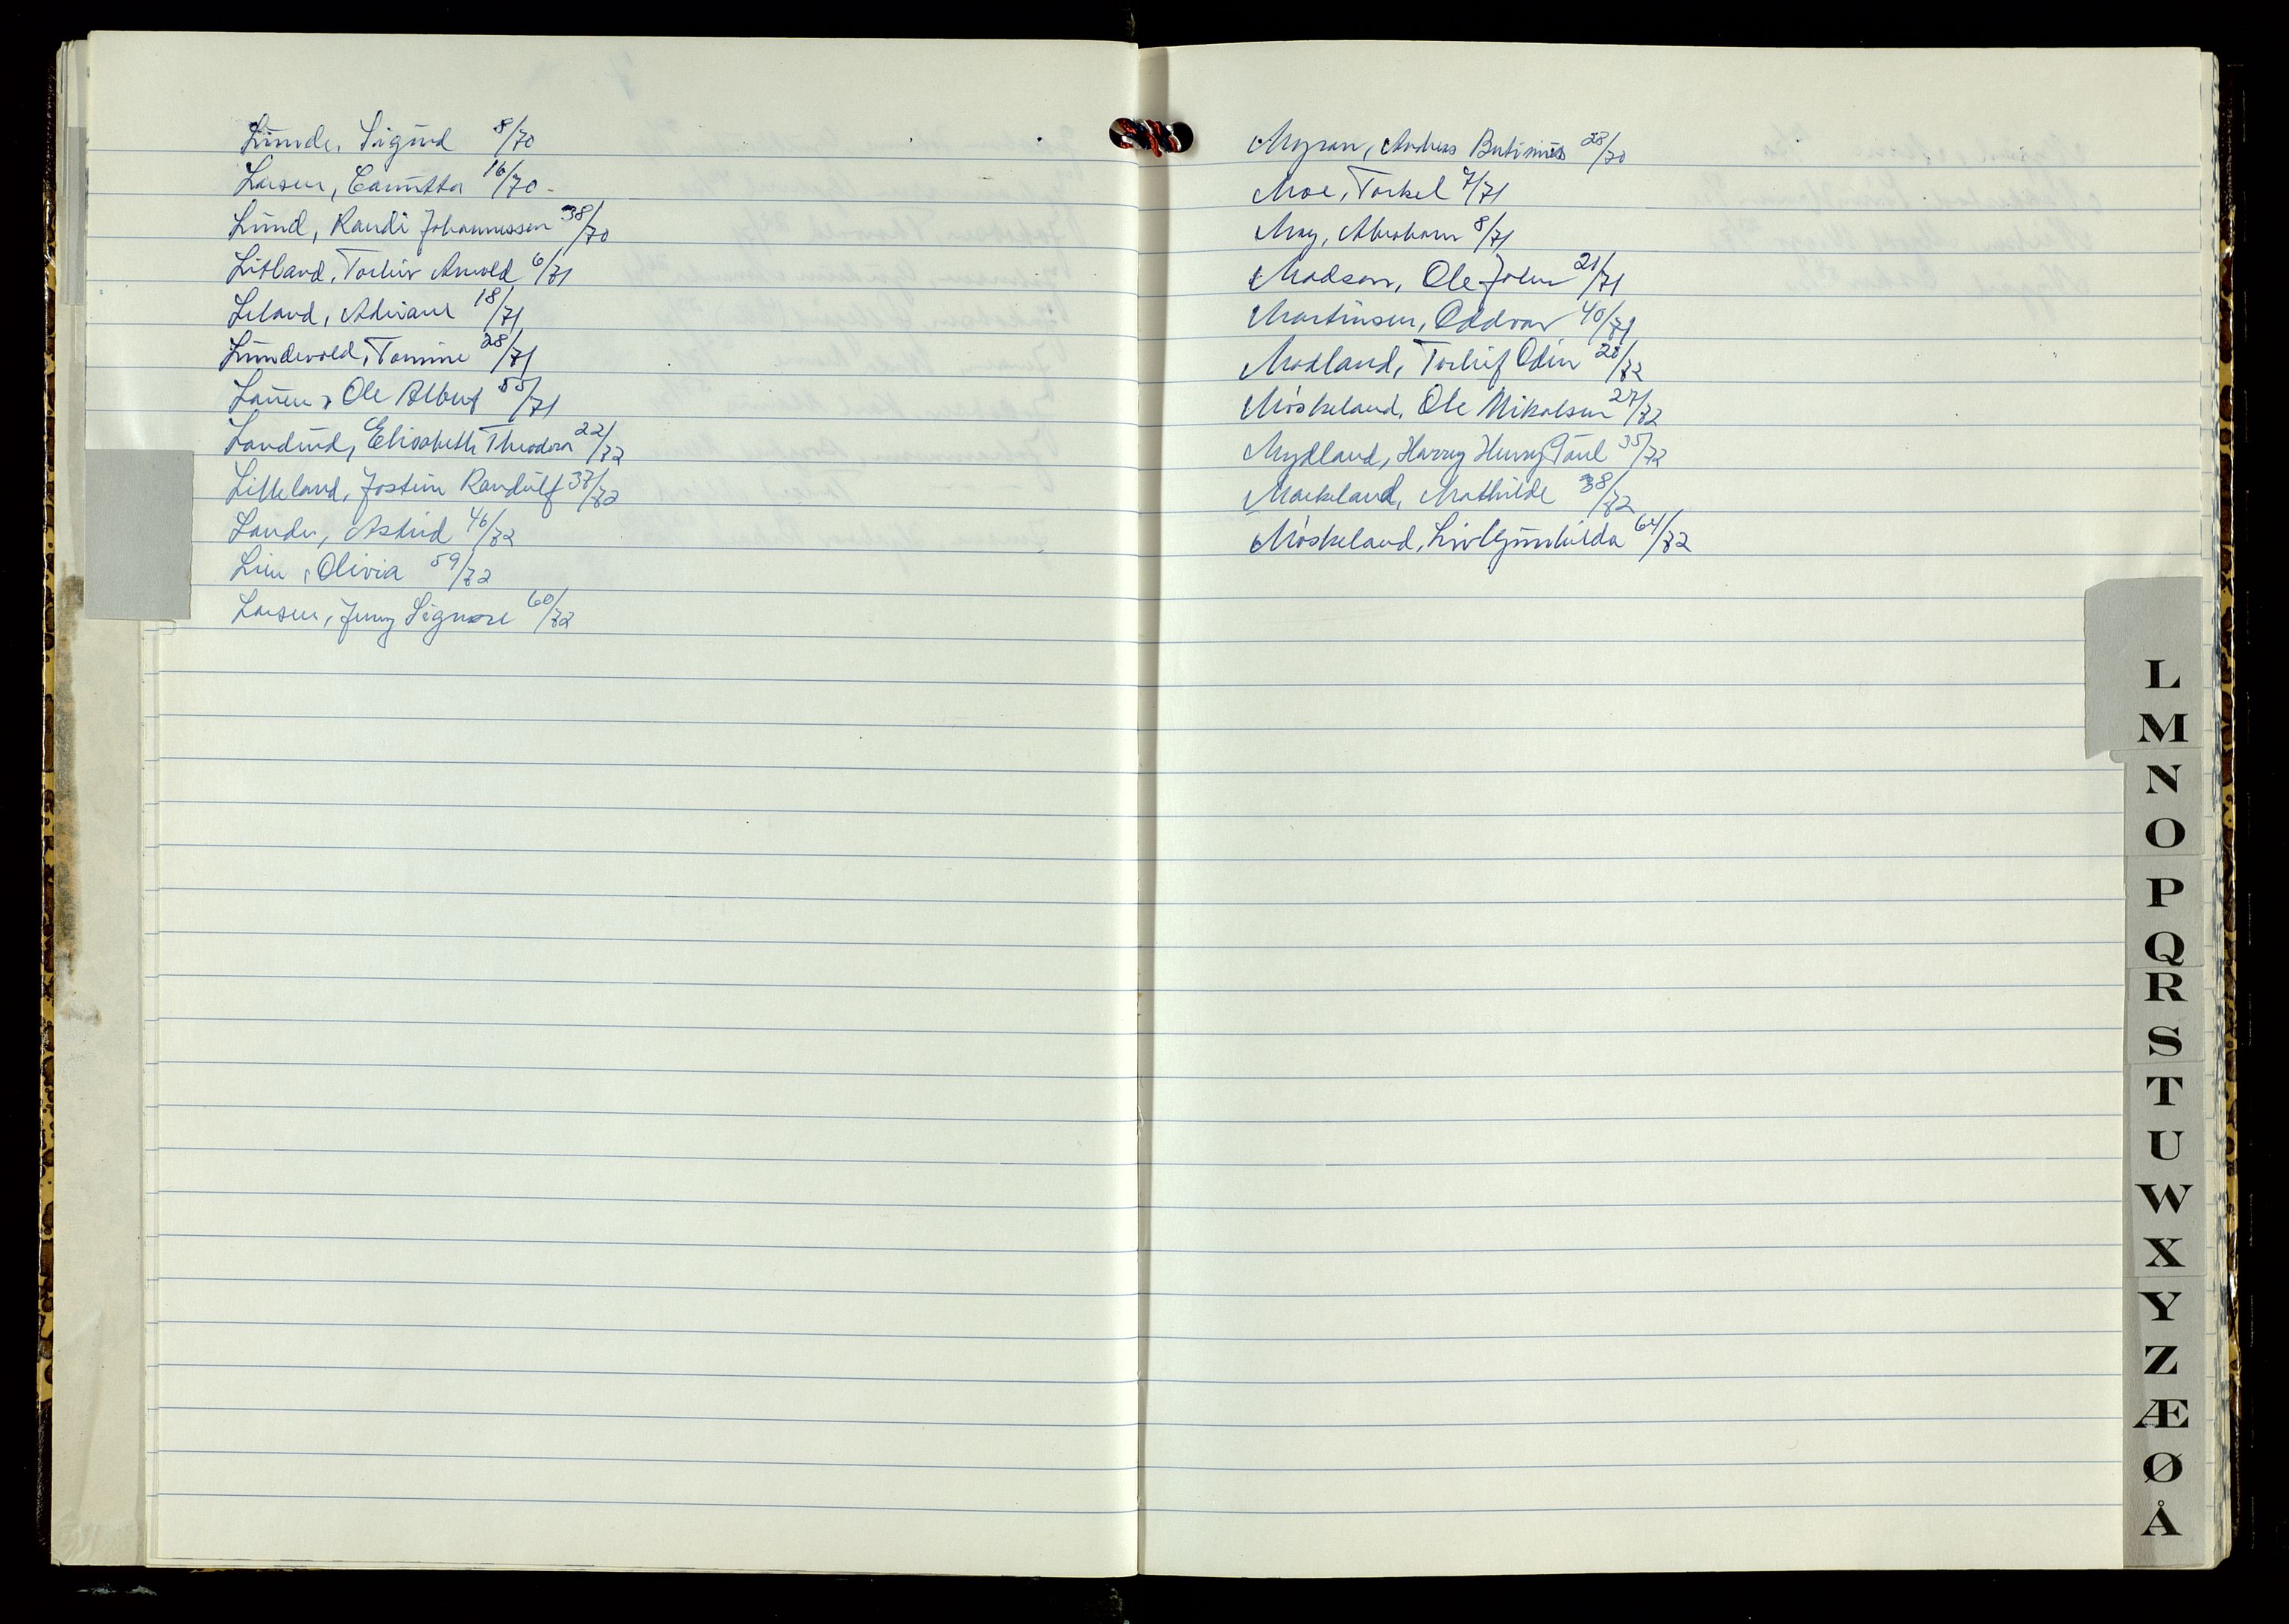 Lunde, Sigurd 8/70
Larsen, 16/70
Lund, Randi Johannessen 38/70
Litland, Torleiv Arnold 6/71
Leland, Adriane 18/71
Lundevold, Tomine 28/71
Lauen, Ole Albert 55/71
Landrud, Elisabeth Theodora 22/72
Lilleland, Jostein Randulf 37/72
Lander, Astrid 46/72
Lien, Olivia 59/72
Larsen, Jenny Signore 60/72
Myran, Andreas 28/70
Moe, Torkel 7/71
May, Abraham 8/71
Madsen, Ole John 21/71
Martinsen, Oddvar 40/71
Modland, Torleif Odin 20/72
Møskeland, Ole Mikalsen 27/72
Mydland, Harry Henry Paul 35/72
Mækeland, Mathilde 38/72
Møskeland, Liv Gunhilda 64/72
L
M
N
O
P
Q
R
S
T
U
W
X
Y
Z
Æ
Ø
Å